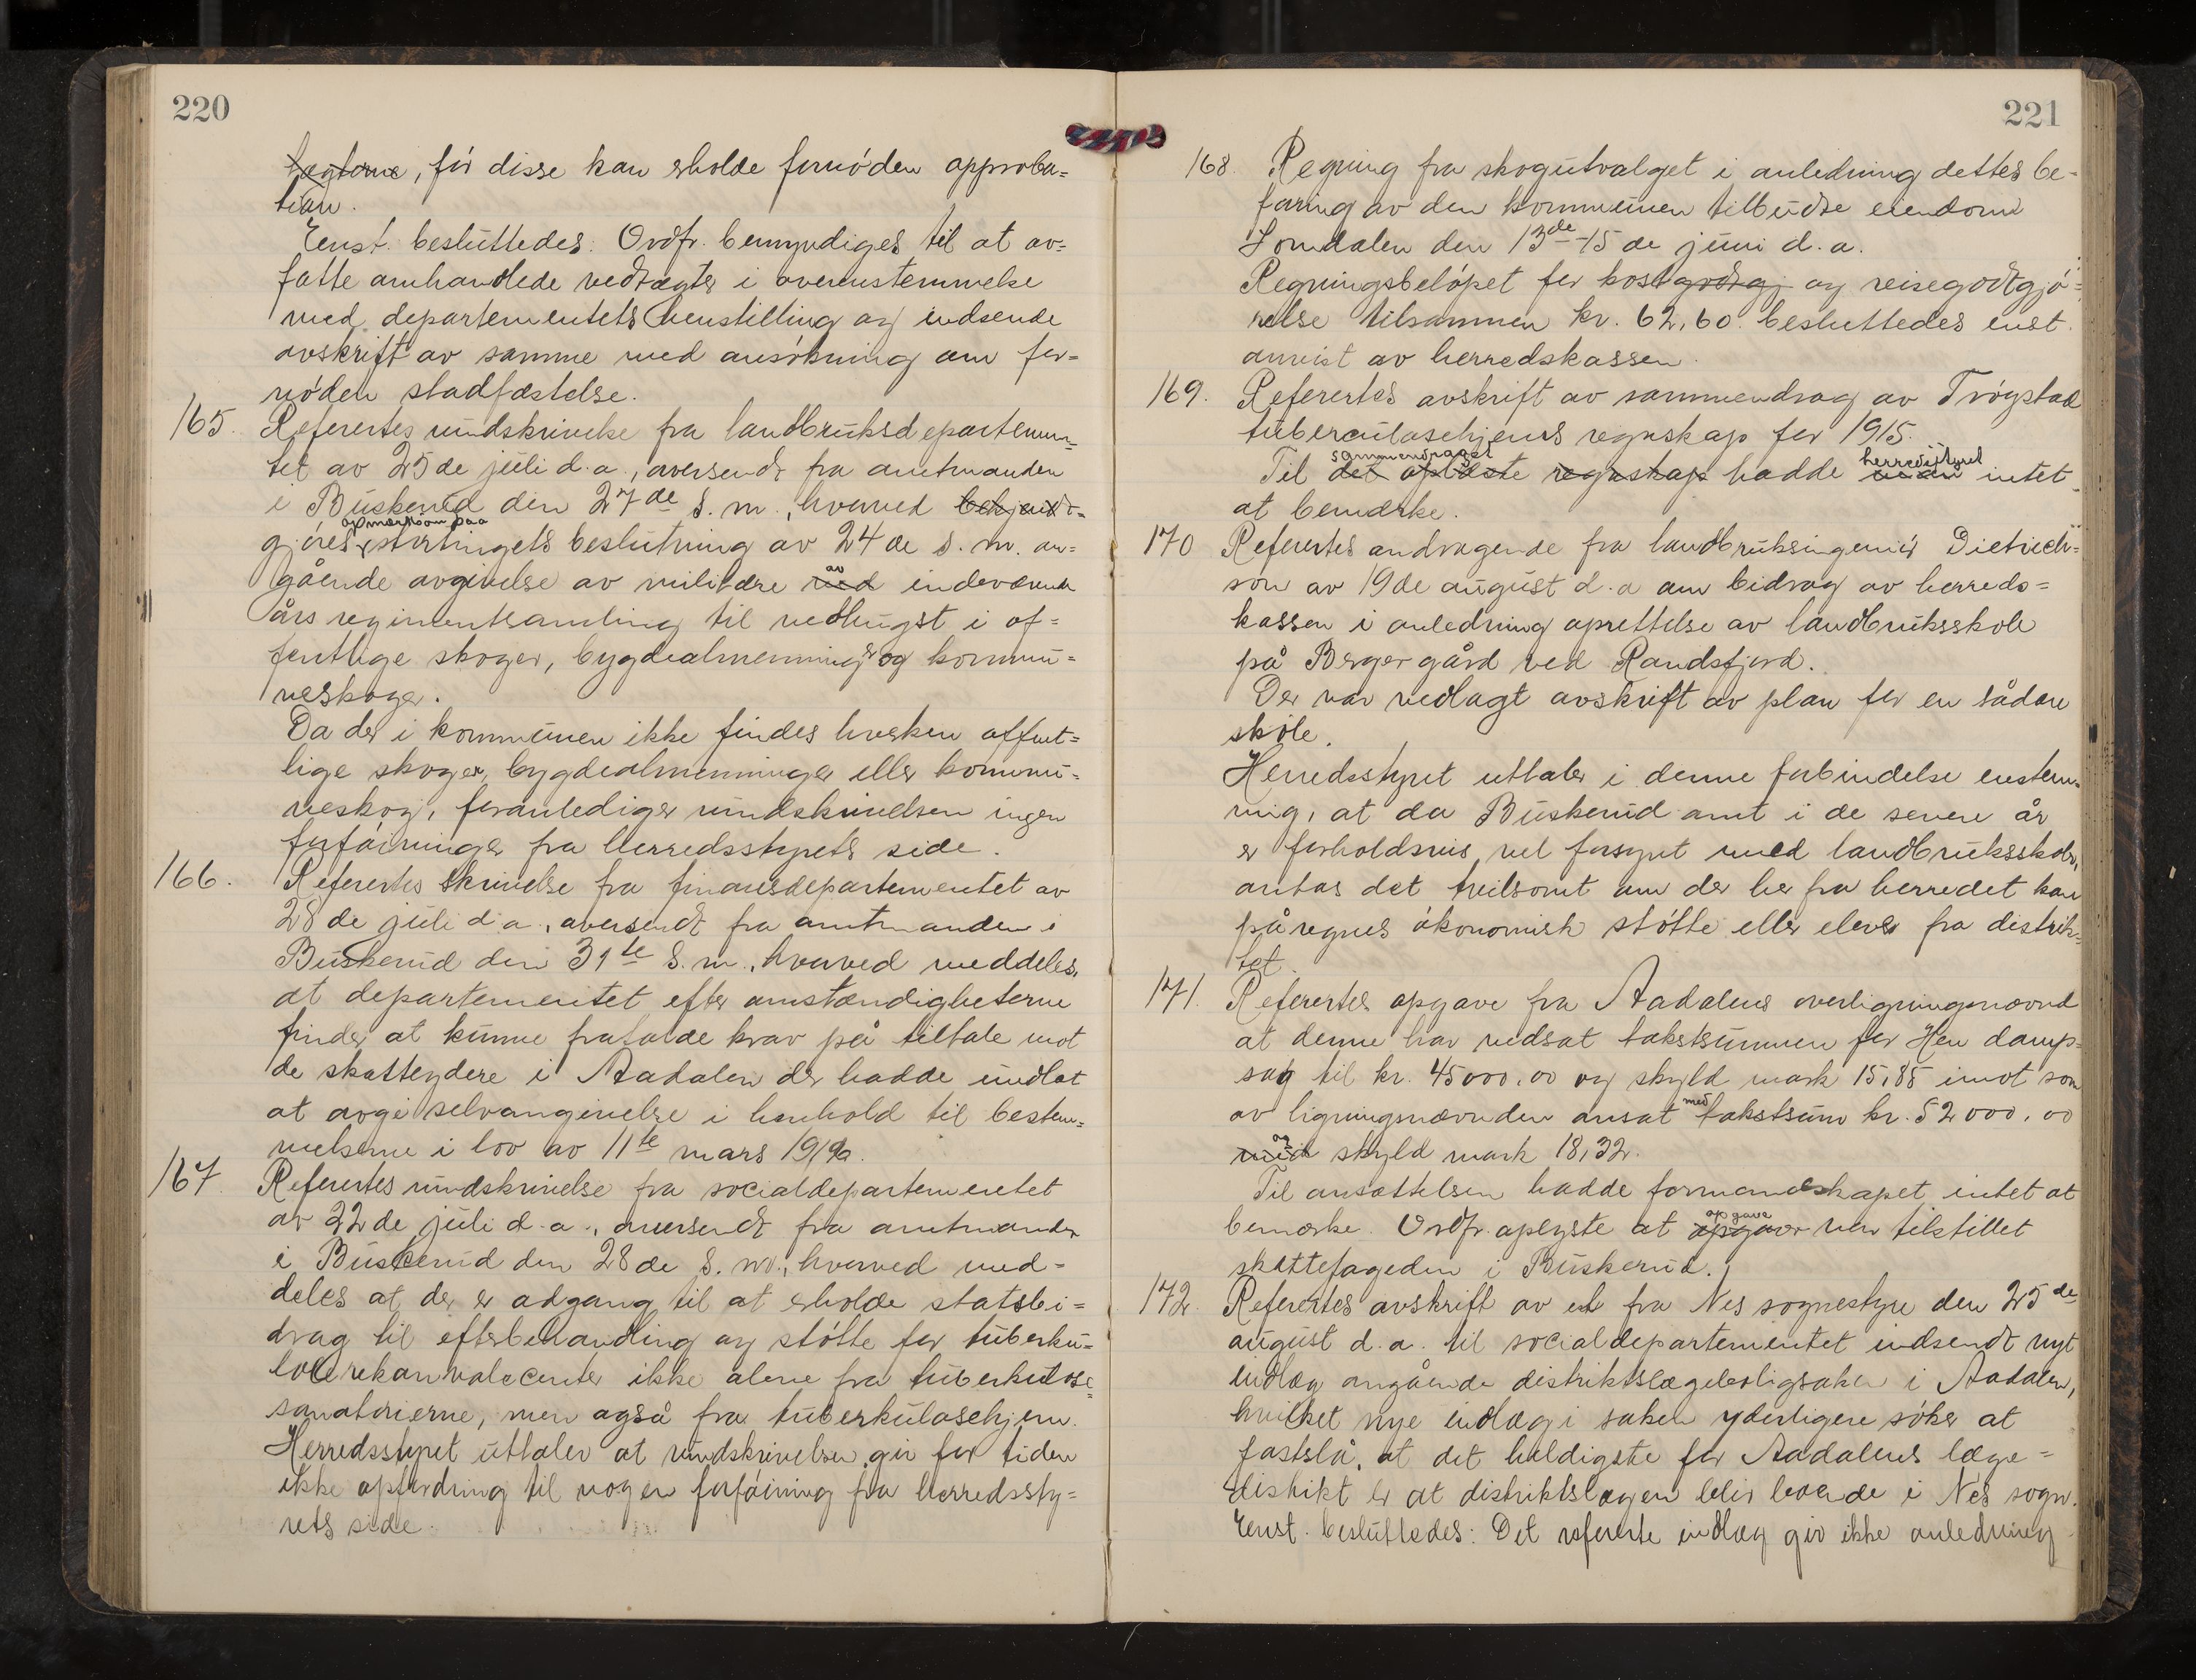 220
tægterne, før disse kan erholde fornøden approba=
tion.
Enst. besluttedes: Ordfr. bemyndiges til at av=
fatte omhandlede vedtægter i overenstemmelse
med departementets henstilling og indsende
avskrift av samme med ansøkning om for=
nøden stadfæstelse.
165. Referertes rundskrivelse fra landbruksdepartemen=
tet av 25de juli d.a., oversendt fra amtmanden
i Buskerud den 27de s.m., hvorved bekjendt=
opmerksom paa
gjøres stortingets beslutning av 24de s.m. an=
gående avgivelse av militære ved av indeværende
års regimentsamling til vedhugst i of=
fentlige skoger, bygdealmenninger og kommu=
neskoger.
Da der i kommunen ikke findes hverken offent=
lige skoger, bygdealmenninger eller kommu=
neskog, foranlediger rundskrivelsen ingen
forføininger fra herredsstyrets side.
166. Referertes skrivelse fra finansdepartementet av
28de juli d.a., oversendt fra amtmanden i
Buskerud den 31te s.m., hvorved meddeles,
at departementet efter omstændigheterne
finder at kunne frafalde krav på tiltale mot
de skatteydere i Aadalen der hadde undlat
at avgi selvangivelse i henhold til bestem=
melserne i lov av 11te mars
167 Referertes rundskrivelse fra socialdepartementet
av 22de juli d.a., oversendt fra amtmanden
i Buskerud den 28de s.m., hvorved med=
deles at der er adgang til at erholde statsbi=
drag til efterbehandling og støtte for tuberku=
løse rekonvalecenter ikke alene fra tuberkulose=
sanatorierne, men også fra tuberkulosehjem.
Herredsstyret uttaler at rundskrivelsen gir for tiden
ikke opfordring til nogen forføining fra herredssty=
rets side.
221
168. Regning fra skogutvalget i anledning dettes be=
faring av den kommunen tilbudte eiendom
Somdalen den 13de-15de juni d.a.
Regningsbeløpet for kostgodtgj og reisegodtgjø=
relse tilsammen kr. 62,60. besluttedes enst.
anvist av herredskassen.
169. Referertes avskrift av sammendrag av Trøgstad
tuberculosehjems regnskap for 1915.
sammendraget herredsstyret
Til det oplæste regnskap hadde intet
at bemerke.
170 Referertes andragende fra landbruksingeniør Dietrich=
son av 19de august d.a om bidrag av herreds=
kassen i anledning oprettelse av landbruksskole
på Berger gård ved Randsfjord.
Der var vedlagt avskrift av plan for en sådan
skole.
Herredsstyret uttaler i denne forbindelse enstem=
mig, at da Buskerud amt i de senere år
er forholdsvis vel forsynt med landbruksskoler,
antas det tvilsomt om der her fra herredet kan
påregnes økonomisk støtte eller elever fra distrik=
tet.
171. Referertes opgave fra Aadalens overligningsnævnd
at denne har nedsat takstsummen for Hen damp=
sag til kr. 45000,00 og skyld mark 15,85 imot som
av ligningsnævnden ansat med takstsum kr. 52000,00
og
med skyld mark 18,32.
Til ansættelsen hadde formandskapet intet at
opgave
bemerke. Ordfr. oplyste at opgaver var tilstillet
skattefogeden i Buskerud.
172. Referertes avskrift av et fra Nes sognestyre den 25de
august d.a. til socialdepartementet indsendt nyt
indlæg angående distriktslægeboligsaken i Aadalen,
hvilket nye indlæg i saken yderligere søker at
fastslå, at det heldigste for Aadalens læge=
distrikt er at distriktslægen blir boende i Nes sogn.
Enst. besluttedes: Det refererte indlæg gir ikke anledning